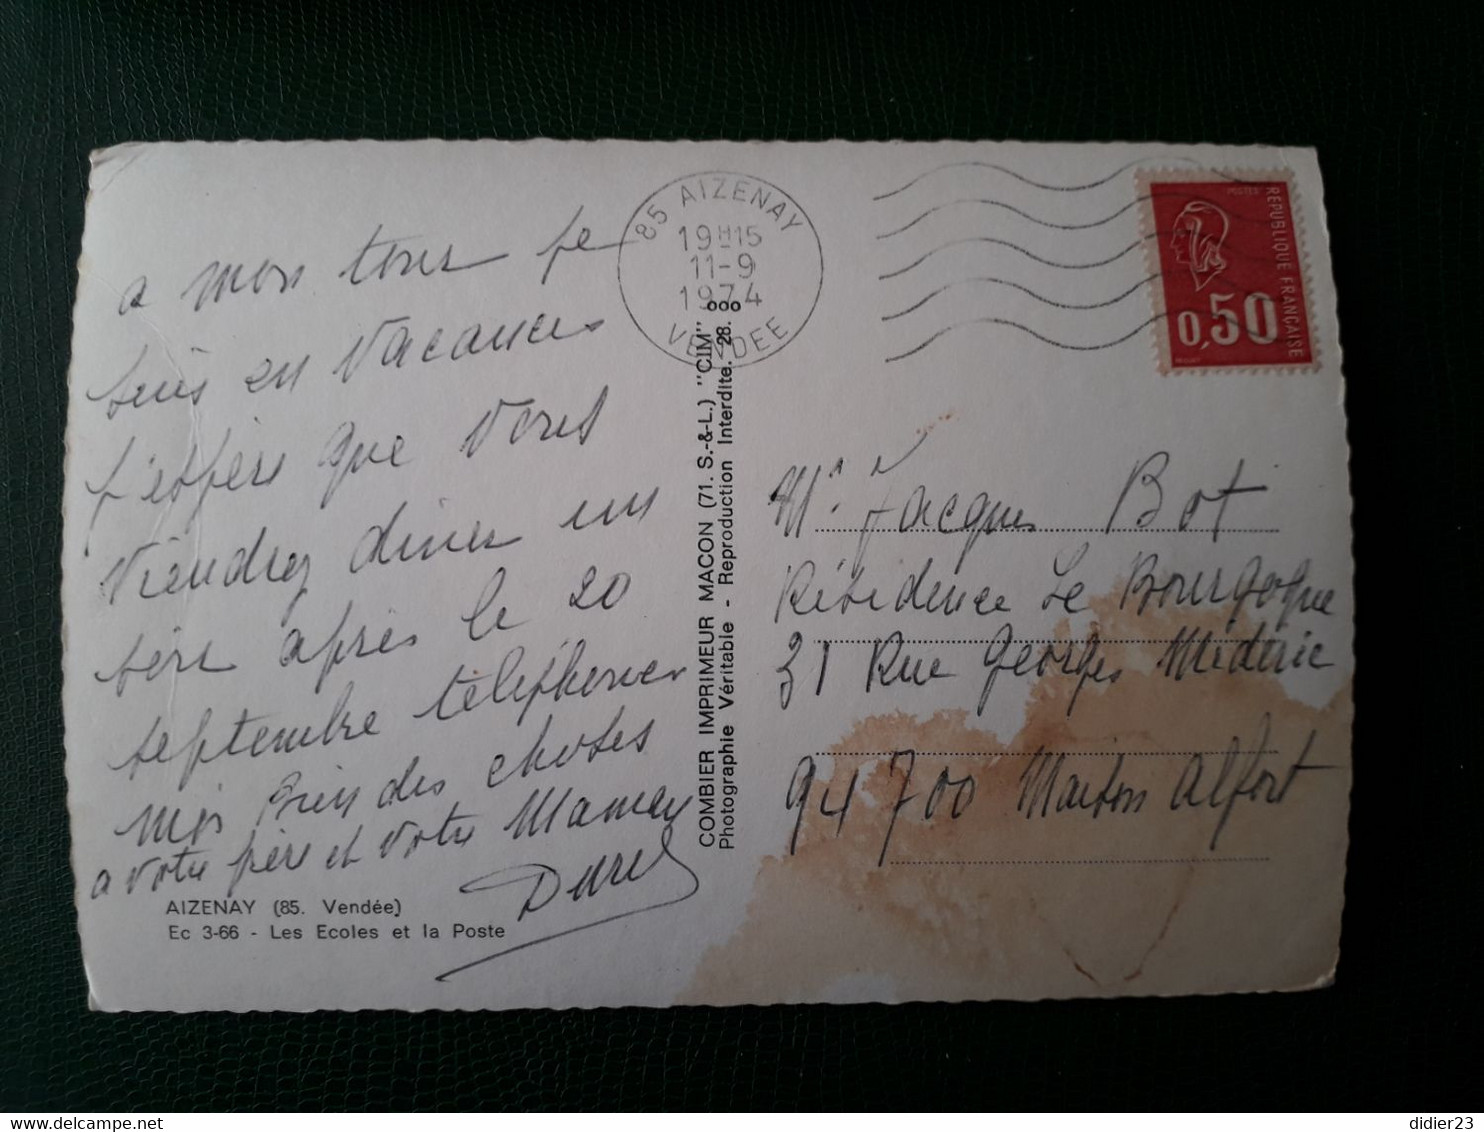 a mon tour je
suis en vacances
j'espère que vous
viendrez diner un
soir après le 20
septembre téléphoner
moi bien des choses
a votre père et votre Maman
AIZENAY (85. Vendée)
Ec 3-66 - Les Ecoles et la Poste
85 AIZENAY
19H15
11-9
1974
VENDEE
COMBIER IMPRIMEUR MACON (71. S.-&-L.) "CIM"
Photographie Véritable - Reproduction Interdite. 28.
POSTES
REPUBLIQUE FRANCAISE
0,50
Mr. Jacques Bot
Résidence Le Bourgogne
31 Rue Georges Médéric
94700 Maison Alfort
didier23